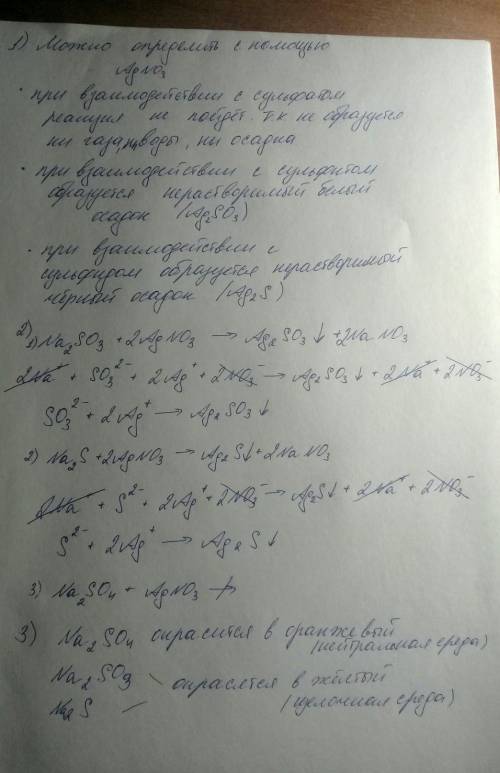 1) Можно определить с помощью
AgNO₃
· при взаимодействии с сульфатом
реакция не пойдёт т.к не образуется
ни газа, ни воды, ни осадка
· при взаимодействии с сульфитом
образуется нерастворимый белый
осадок (Ag₂SO₃)
· при взаимодействии с
сульфидом образуется нерастворимый
чёрный осадок (Ag₂S)
2)
1) Na₂SO₃ + 2AgNO₃ → Ag₂SO₃↓ + 2NaNO₃
2Na⁺ + SO₃²⁻ + 2Ag⁺ + 2NO₃⁻ → Ag₂SO₃↓ + 2Na⁺ + 2NO₃⁻
SO₃²⁻ + 2Ag⁺ → Ag₂SO₃↓
2) Na₂S + 2AgNO₃ → Ag₂S↓ + 2NaNO₃
2Na⁺ + S²⁻ + 2Ag⁺ + 2NO₃⁻ → Ag₂S↓ + 2Na⁺ + 2NO₃⁻
S²⁻ + 2Ag⁺ → Ag₂S↓
3) Na₂SO₄ + AgNO₃ ↛
3) Na₂SO₄ окрасится в оранжевый
(нейтральная среда)
Na₂SO₃ \ окрасятся в жёлтый
Na₂S / (щелочная среда)